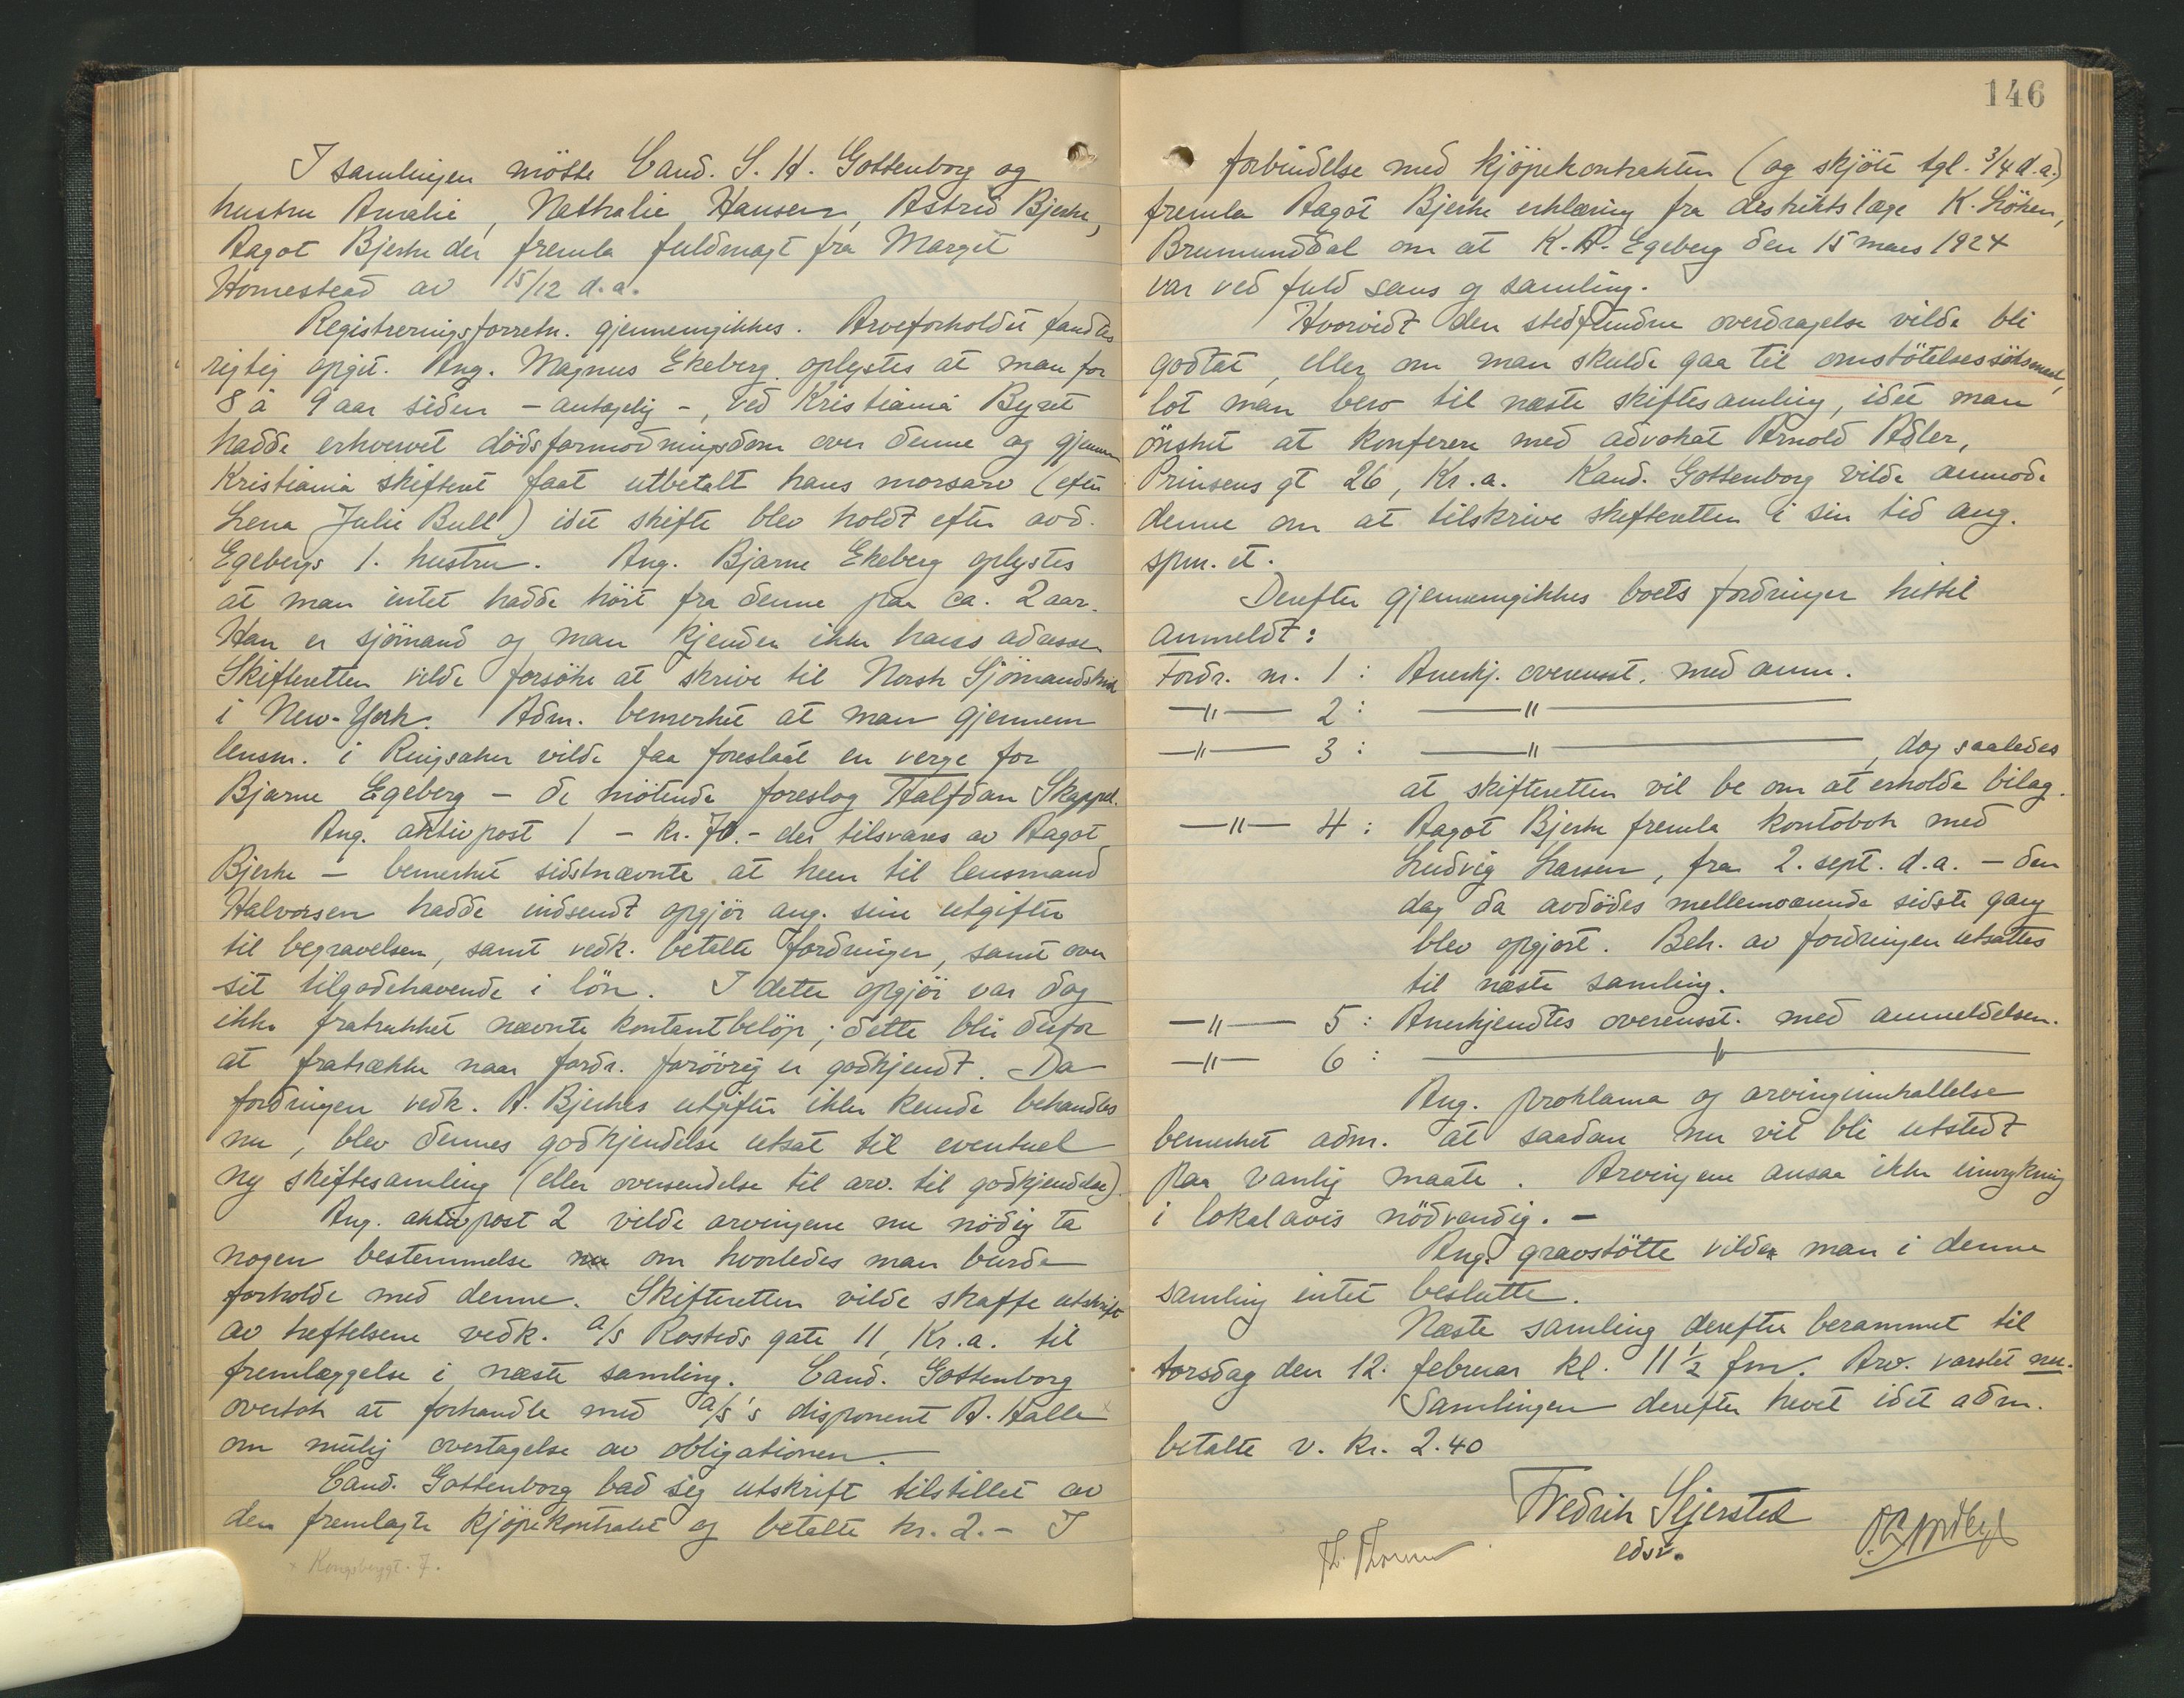 I samlingen møtte Cand. S. H. Gottenborg og
hustru Amalie, Nathalie Hansen, Astrid Bjerke,
Aagot Bjerke der fremla fuldmagt fra Margit
Homestead av 15/12 d.a.
Registreringsforretn. gjennemgikkes. Arveforholdet fandtes
rigtig opgit. Ang. Magnus Ekeberg oplystes at man for
8 à 9 aar siden - antagelig -, ved Kristiania Byret
hadde erhvervet dødsformodningsdom over denne og gjennem
Kristiania skifteret faat utbetalt hans morsarv (efter
Lena Julie Bull) idet skifte blev holdt efter avd.
Egebergs 1. hustru. Ang. Bjarne Ekeberg oplystes
at man intet hadde hørt fra denne paa ca. 2 aar.
Han er sjømand og man kjender ikke hans adresse.
Skifteretten vilde forsøke at skrive til Norsk
i New-York. Adm. bemerket at man gjennem
lensm. i Ringsaker vilde faa foreslaat en verge for
Bjarne Egeberg - de møtende foreslog Halfdan Skappel.
Ang. aktivpost 1 - kr. 70.- der tilsvares av Aagot
Bjerke - bemerket sidstnævnte at hun til lensmand
Halvorsen hadde indsendt opgjør ang. sine utgifter
til begravelsen, samt vedk. betalte fordringer, samt over
sit tilgodehavende i løn. I dette opgjør var dog
ikke fratrukket nævnte kontantbeløp; dette blir derfor
at fratrække naar fordr. forøvrig er godkjendt. Da
fordringen vedk. A. Bjerkes utgifter ikke kunde behandles
nu, blev dennes godkjendelse utsat til eventuel
ny skiftesamling (eller oversendelse til arv. til godkjendelse).
Ang. aktivpost 2 vilde arvingene nu nødig ta
nogen bestemmelse om hvorledes man burde
forholde med denne. Skifteretten vilde skaffe utskrift
av heftelsene vedk. a/s Rosteds gate 11, Kr.a. til
fremlæggelse i næste samling. Cand. Gottenborg
overtok at forhandle med a/s's disponent A. Halle x
om mulig overtagelse av obligationen.
Cand. Gottenborg bad sig utskrift tilstillet av
den fremlagte kjøpekontrakt og betalte kr. 2.- I
x Kongsberggt. 7.
146
forbindelse med kjøpekontrakten (og skjøte tgl. 3/4 d.a.)
fremla Aagot Bjerke erklæring fra destriktslæge K. Løken,
Brumunddal om at K. A. Egeberg den 15 mars 1924
var ved fuld sans og samling.
Hvorvidt den stedfundne overdragelse vilde bli
godtat, eller om man skulde gaa til omstøtelsessøksmaal,
lot man bero til næste skiftesamling, idet man
ønsket at konferere med advokat Arnold Adler,
Prinsens gt 26, Kr.a. Kand. Gottenborg vilde anmode
denne om at tilskrive skifteretten i sin tid ang.
spm. et.
Derefter gjennemgikkes boets fordringer hittil
anmeldt:
Fordr. nr. 1 : Anerkj. overensst. med anm.
—"— 2 : —"—
—"— 3 : —"—, dog saaledes
at skifteretten vil be om at erholde bilag.
—"— 4 : Aagot Bjerke fremla kontobok med
Ludvig Larsen, fra 2. sept. d.a. - den
dag da avdødes mellemværende sidste gang
blev opgjort. Beh. av fordringen utsattes
til næste samling.
—"— 5 : Anerkjendtes overensst. med anmeldelsen.
—"— 6 : —"—
Ang. proklama og arvingeinnkallelse
bemerket adm. at saadan nu vil bli utstedt
paa vanlig maate. Arvingene ansaa ikke innrykning
i lokalavis nødvendig. -
Ang. gravstøtte vilde man i denne
samling intet beslutte.
Næste samling derefter berammet til
torsdag den 12. februar kl. 11 1/2 fm. Arv. varslet nu.
Samlingen derefter hevet idet adm.
betalte v. kr. 2.40
Fredrik Sejersted
edsv.